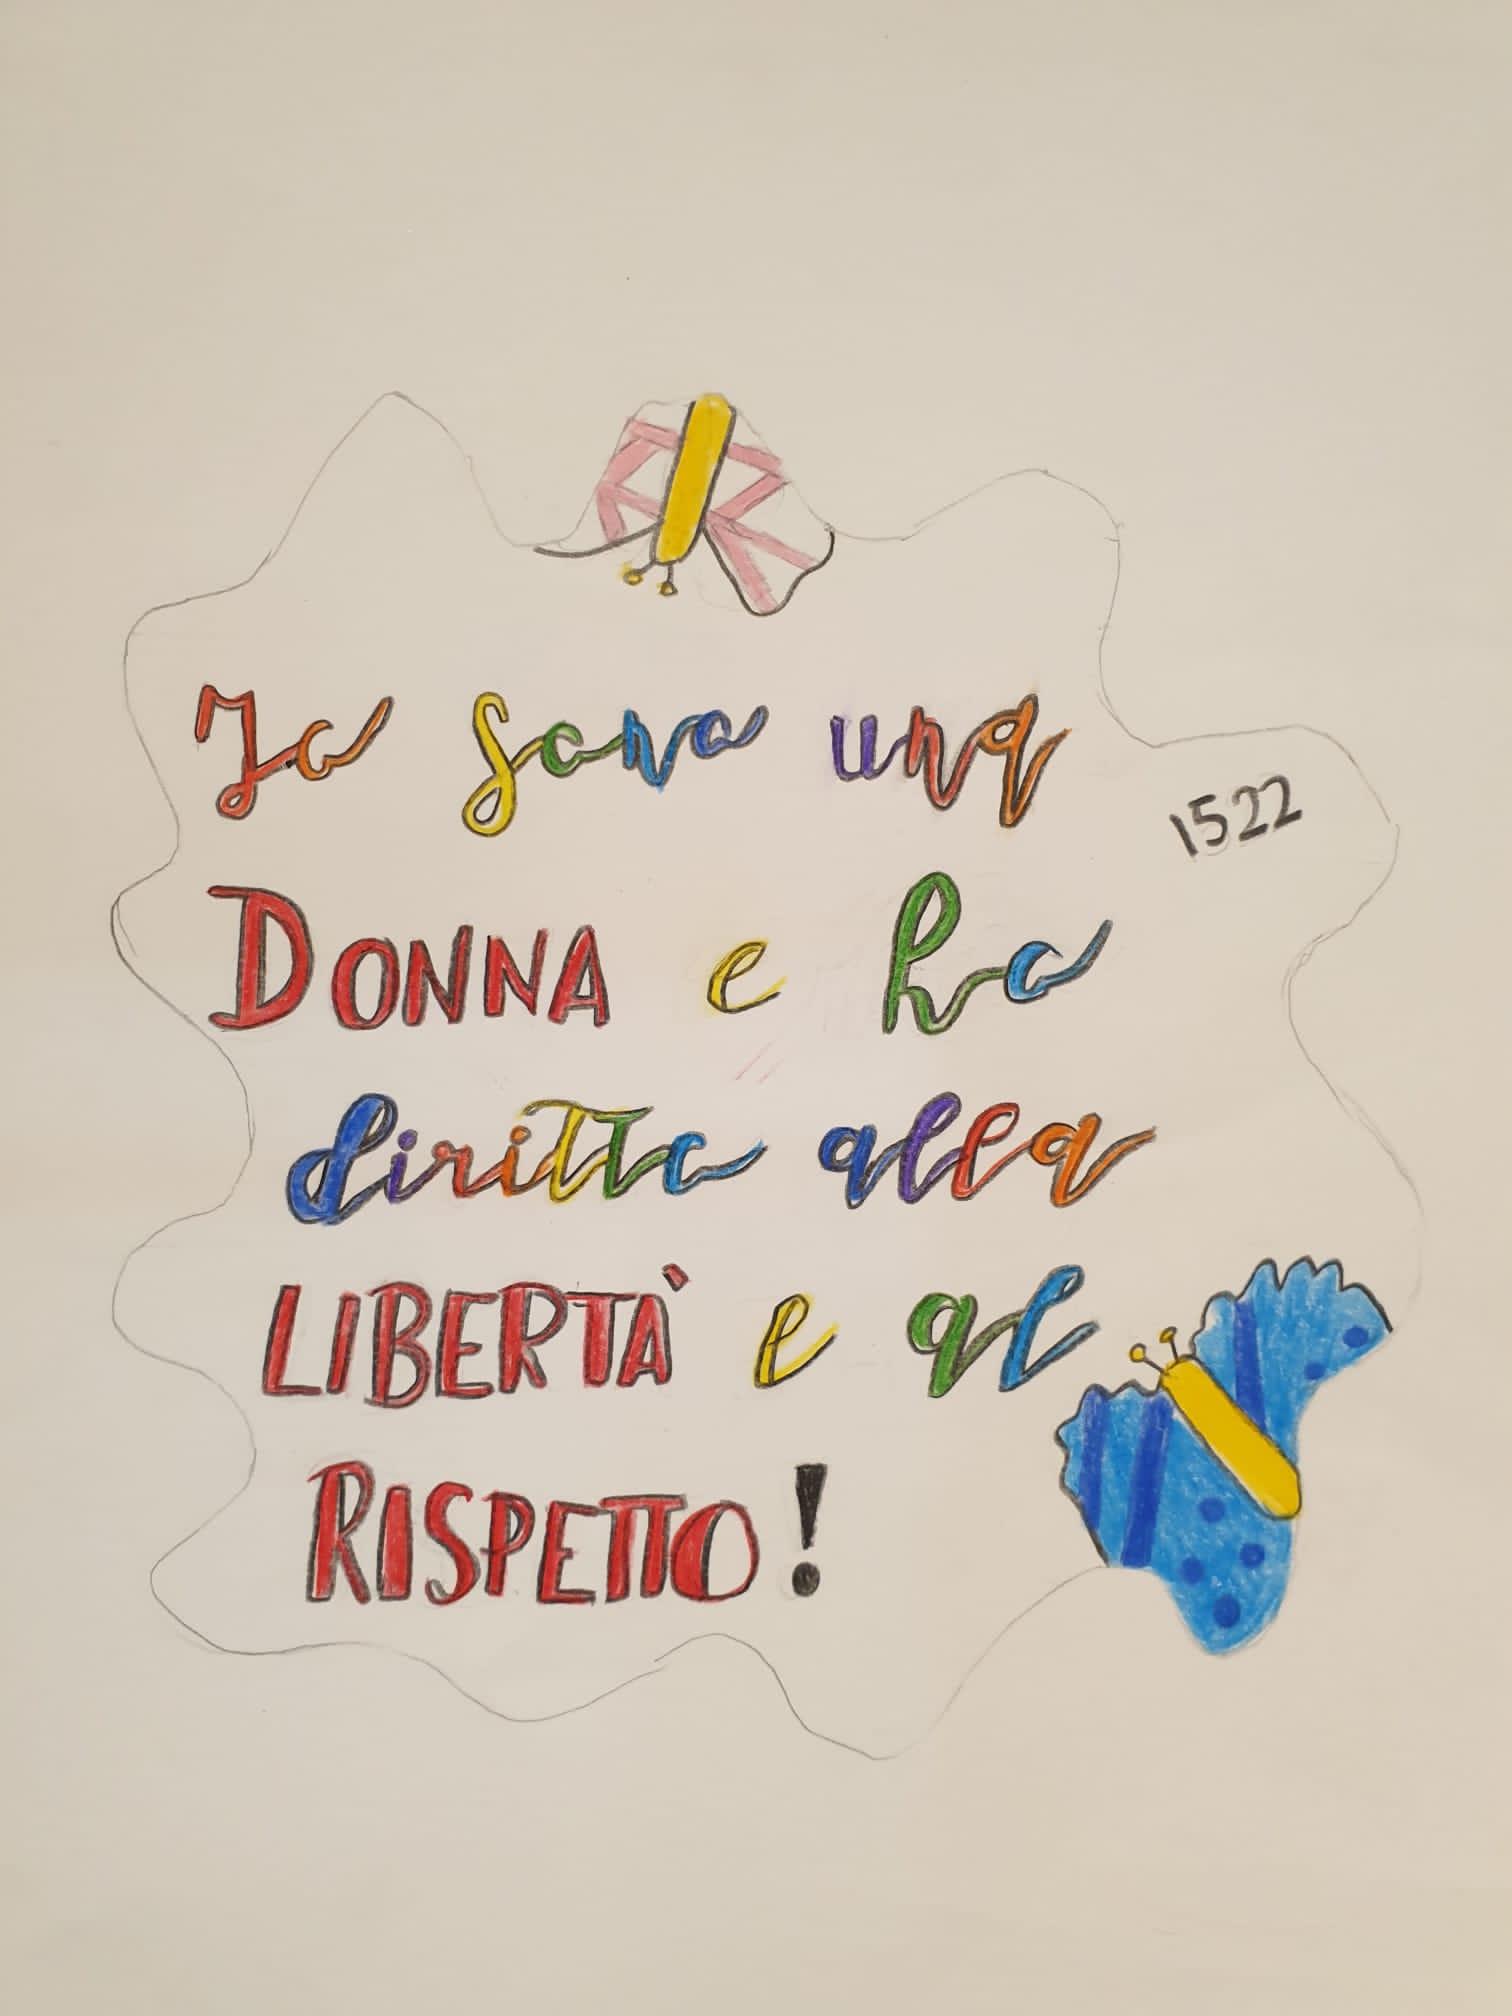 Io sono una
1522
DONNA e ho
diritto alla
LIBERTÀ e al
RISPETTO!